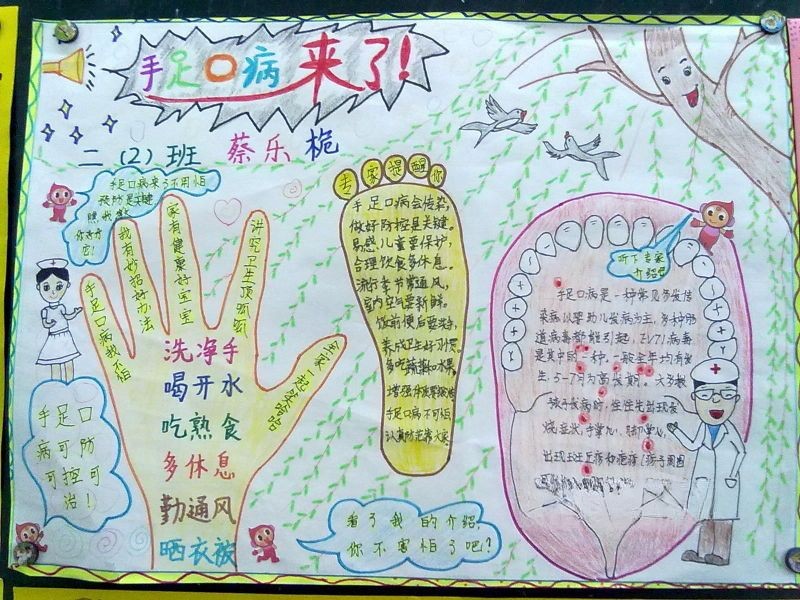 手足口病来了!
二（2）班 蔡乐桅
手足口病来了不用怕
预防是关键
专家提醒你
手足口病会传染,
做好防控是关键。
易感儿童要保护,
合理饮食多休息。
流行季节常通风,
室内空气要新鲜。
饭前便后要洗手,
养成卫生好习惯。
多吃蔬菜和水果,
增强体质
手足口病不可怕
认真防范
手足口病我不怕
我有妙招好办法
家有健康好宝宝
讲究卫生顶呱呱
全家一起笑哈哈
洗净手
喝开水
吃熟食
多休息
勤通风
晒衣被
手足口
病可防
可控可
治!
听下专家
介绍吧
手足口病是一种常见多发传
染病,以婴幼儿发病为主,多种肠
道病毒都能引起,EV71病毒
是其中的一种。一般全年均有发
生,5-7月为高发期。大多数
孩子发病时,往往先出现发
烧症状,手掌心、脚掌心
出现斑丘疹和疱疹
看了我的介绍,
你不害怕了吧?